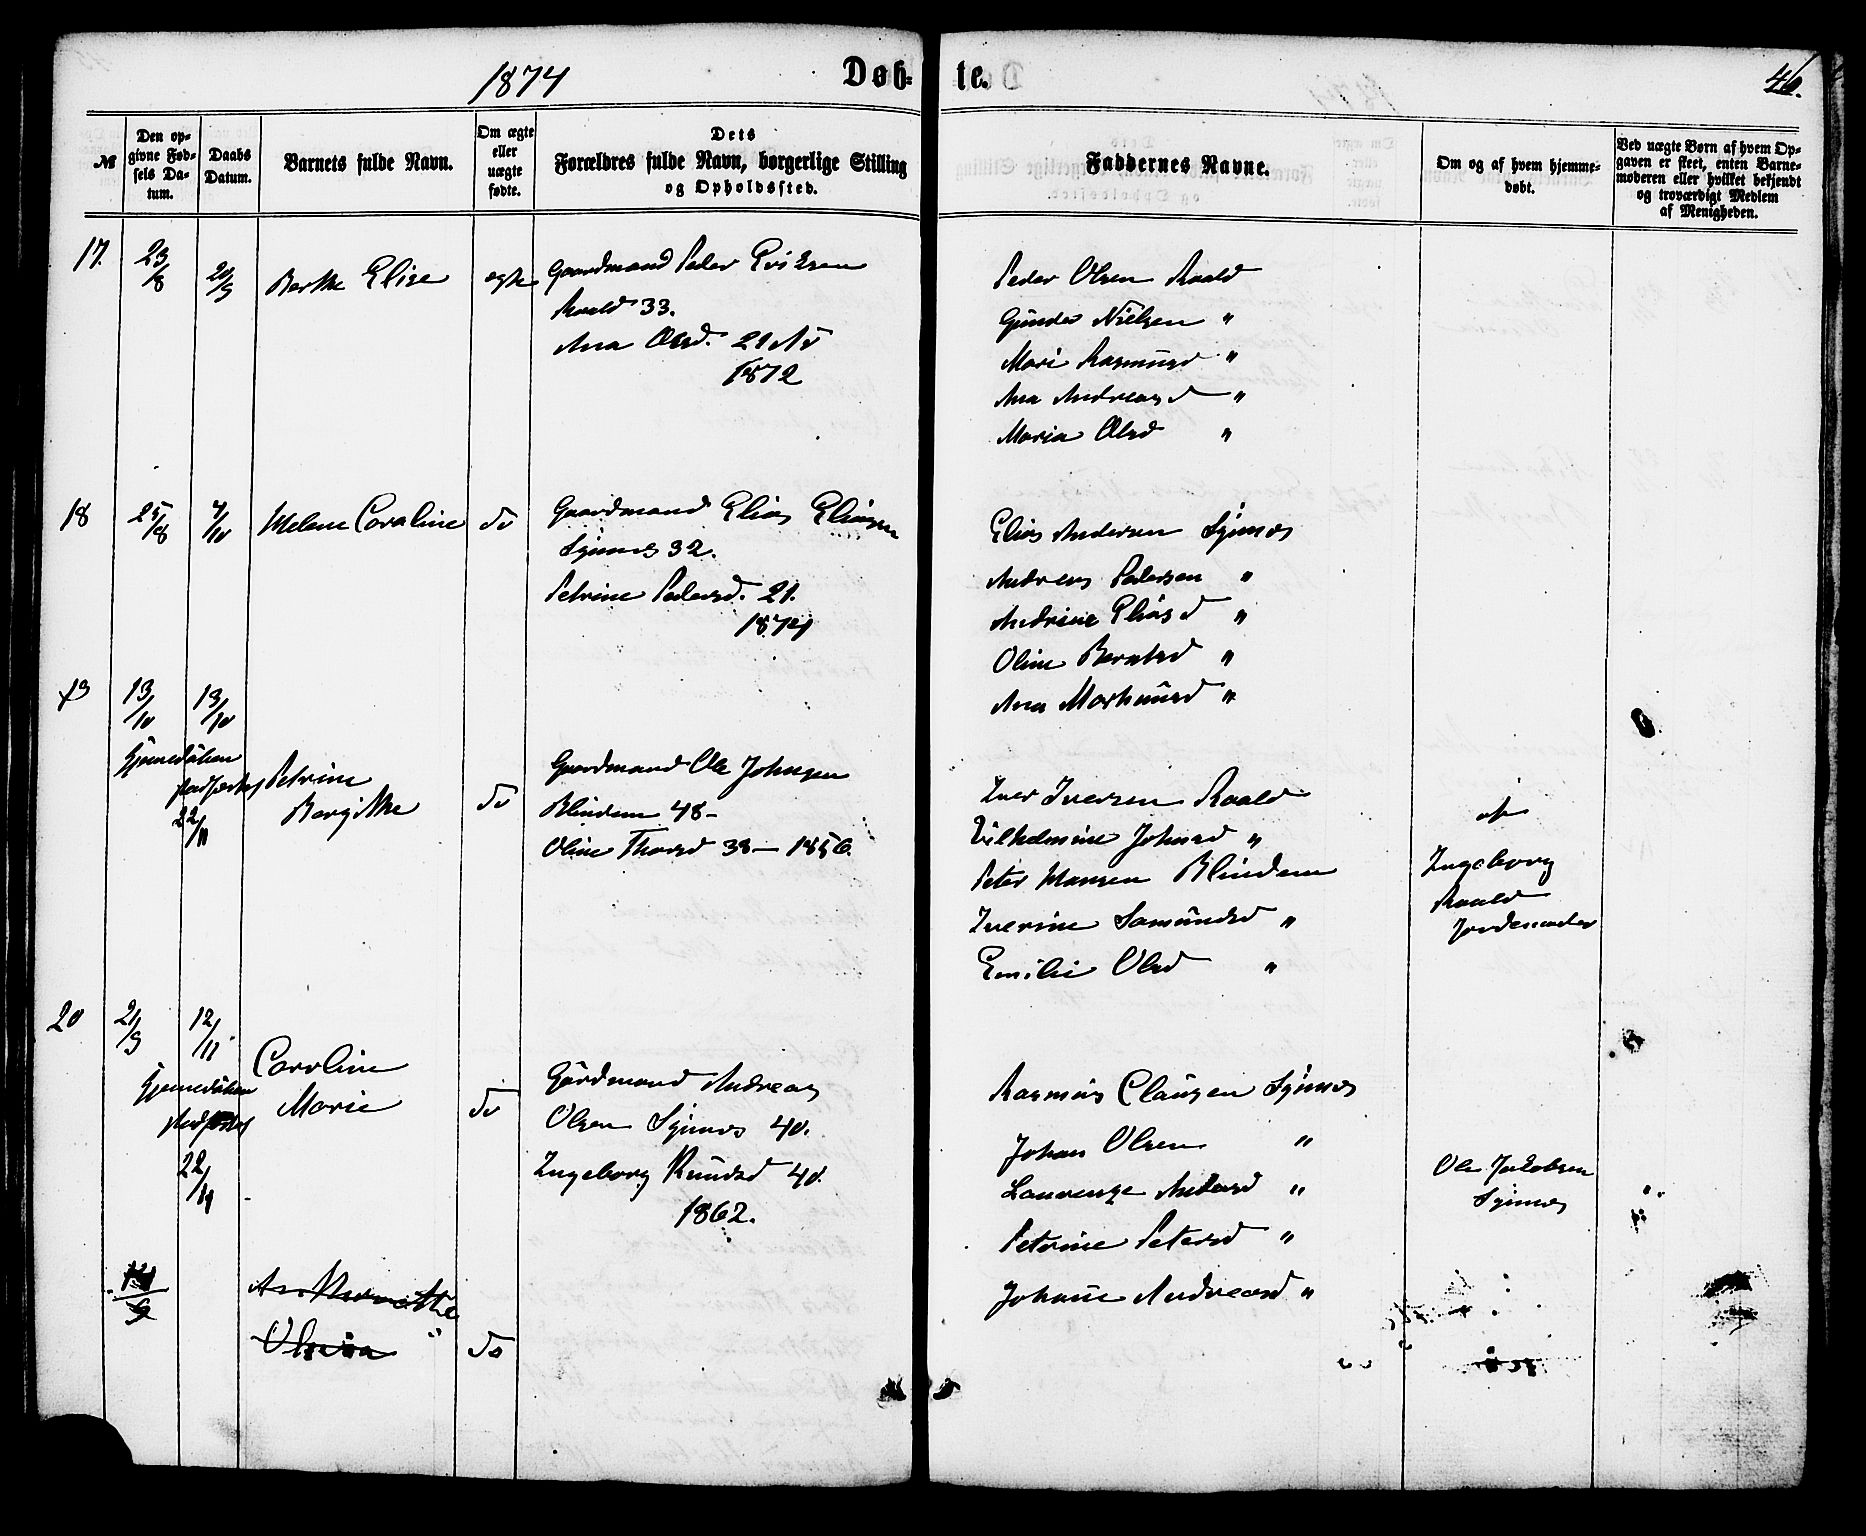 1874
Døb-
te.
46.
№
Den op-
givne Fød-
sels Da-
tum.
Daabs
Datum.
Barnets fulde Navn.
Om ægte
eller
uægte
fødte.
Dets
Forældres fulde Navn, borgerlige Stilling
og Opholdssted.
Faddernes Navne.
Om og af hvem hjemme-
døbt.
Ved uægte Børn af hvem Op-
gaven er skeet, enten Barne-
moderen eller hvilket bekjendt
og troværdigt Medlem
af Menigheden.
17.
23/8
20/9
Berthe Elise
egte
Gaardmand Peder Eriksen
Roald 33.
Ana Olsd. 21
1872
Peder Olsen Roald
Gunder Nielsen "
Mari Rasmusd "
Ana Andreasd "
Maria Olsd "
18
25/8
4/10
Helene Caroline
do
Gaardmand Elias Eliasen
Synnes 32.
Petrine Pedersd. 21.
1874
Elias Andersen Synnes
Andreas Pedersen "
Andrine Eliasd "
Oline Berntsd "
Ana Marthinusd "
19
13/10
13/10
hjemedøben
stadfæstes
22/11
Petrine
Bergithe
do
Gaardmand Ole Johnsen
Blindem 48-
Oline Thorsd 38 – 1856.
Iver Iversen Roald
Vilhelmine Johnsd "
Peter Hansen Blindem
Iverine Samundsd "
Emilie Olsd "
af
Ingeborg
Roald
Jordemoder
20
21/9
12/11
hjemedøben
stadfæstes
22/11
Caroline
Marie
do
Gårdmand Andreas
Olsen Synnes 40.
Ingeborg Knudsd 40.
1862.
Rasmus Clausen Synnes
Johan Olsen "
Laurense Andersd "
Petrine Petersd "
Johane Andreasd "
Ole Jakobsen
Synnes
do